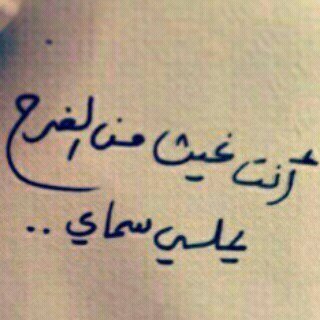 أنت غيث من الفرح
يملي سماي ..